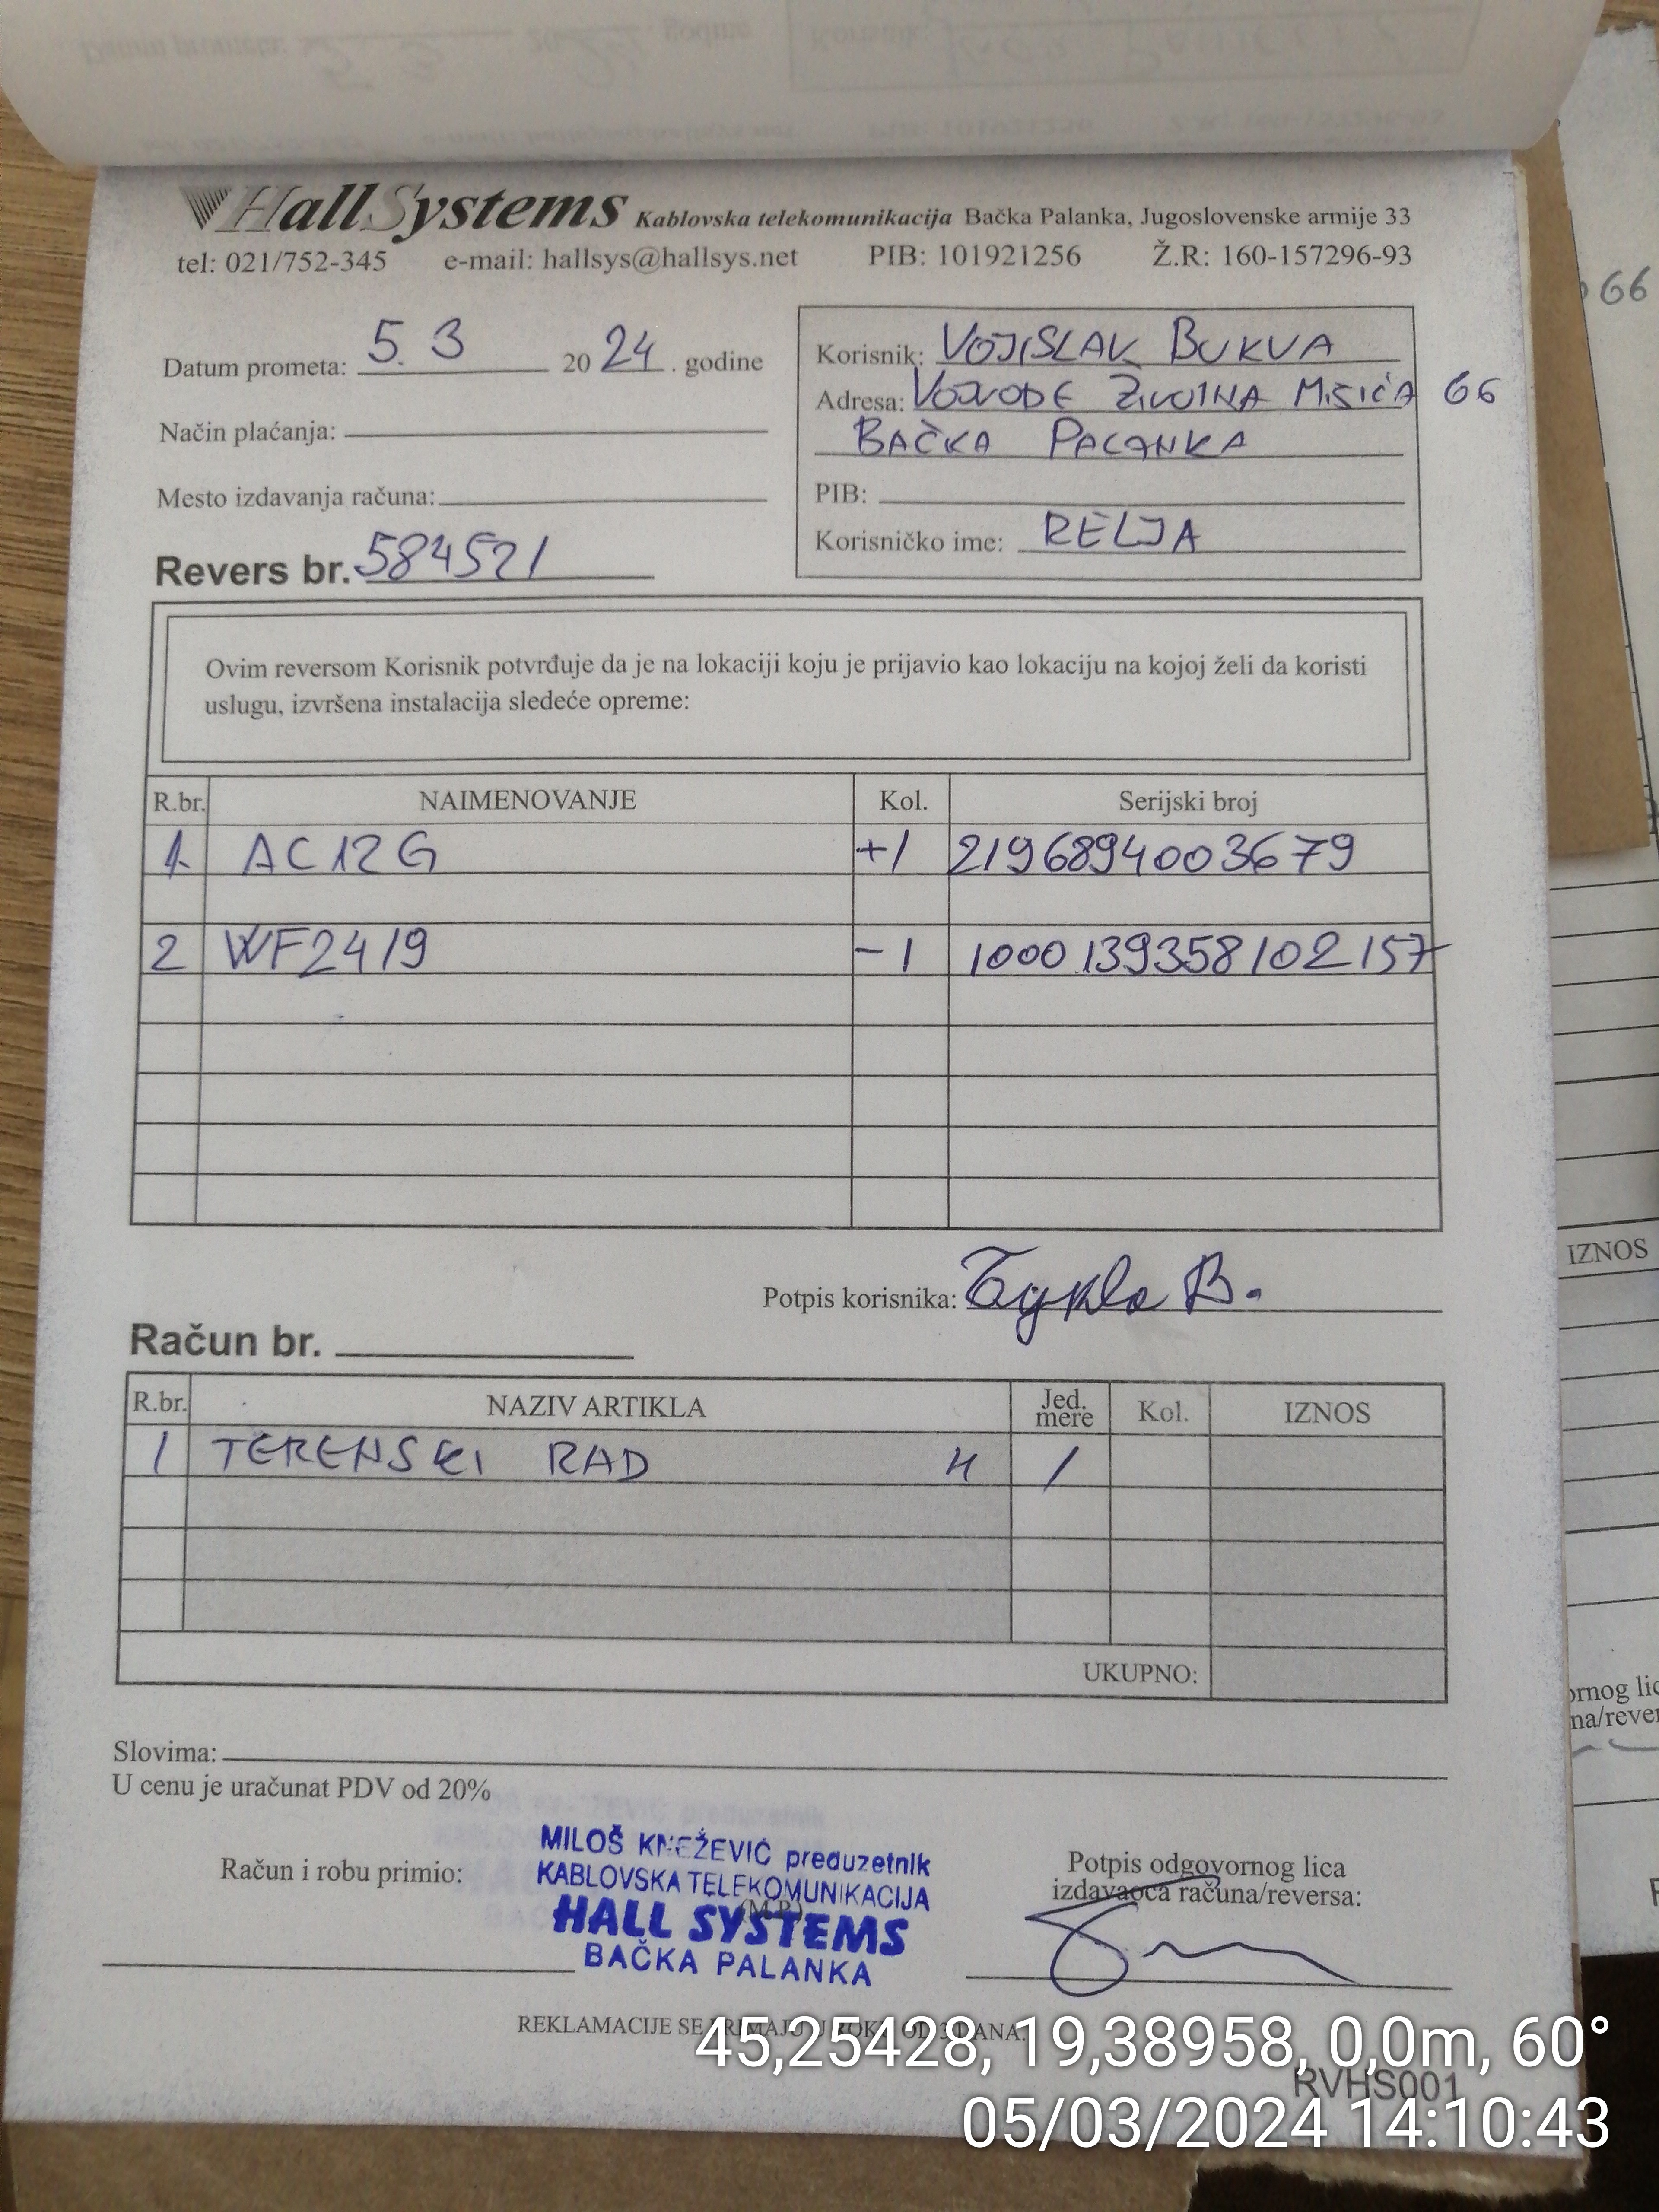 HallSystems Kablovska telekomunikacija Bačka Palanka, Jugoslovenske armije 33
tel: 021/752-345 e-mail: hallsys@hallsys.net PIB: 101921256 Ž.R: 160-157296-93
Datum prometa: 5. 3 2024. godine
Način plaćanja:
Mesto izdavanja računa:
Revers br. 584521
Korisnik: VOJISLAV BUKVA
Adresa: VOJVODE ŽIVOJINA MIŠIĆA 66
BAČKA PALANKA
PIB:
Korisničko ime: RELJA
66
Ovim reversom Korisnik potvrđuje da je na lokaciji koju je prijavio kao lokaciju na kojoj želi da koristi
uslugu, izvršena instalacija sledeće opreme:
R.br. NAIMENOVANJE Kol. Serijski broj
1 AC12G +1 2196894003679
2 WF2419 -1 1000139358102157
Potpis korisnika:
IZNOS
Račun br.
R.br. NAZIV ARTIKLA Jed. mere Kol. IZNOS
1 TERENSKI RAD H 1
UKUPNO:
Slovima:
U cenu je uračunat PDV od 20%
Račun i robu primio:
MILOŠ KNEŽEVIĆ preduzetnik
KABLOVSKA TELEKOMUNIKACIJA
(M.P.)
HALL SYSTEMS
BAČKA PALANKA
Potpis odgovornog lica
izdavaoca računa/reversa:
REKLAMACIJE SE PRIMAJU U ROKU OD 3 DANA.
45,25428, 19,38958, 0,0m, 60°
RVHS001
05/03/2024 14:10:43